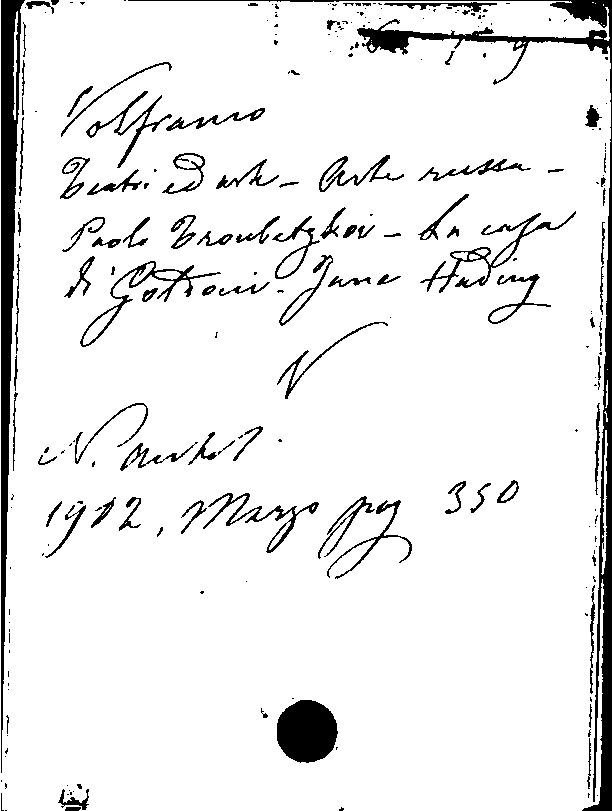 Volframo
Teatri ed arte - Arte russa -
Paolo Troubetzkoi - La casa
di Jane Hading
N
N. Antol.
1902, Marzo pag 350